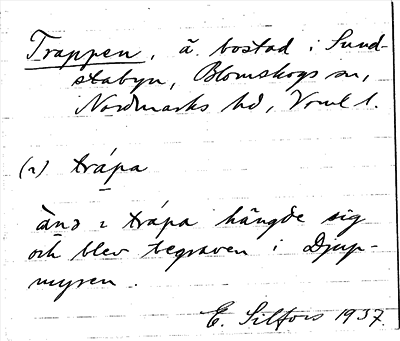 Trappen, ä. bostad i Sund-
stabyn, Blomskogs sn,
Nordmarks hd, Vrml l.
(ı) trápa
ànə ı trápa hängde sig
och blev begraven i Djup-
myren.
E. Silfors 1937.